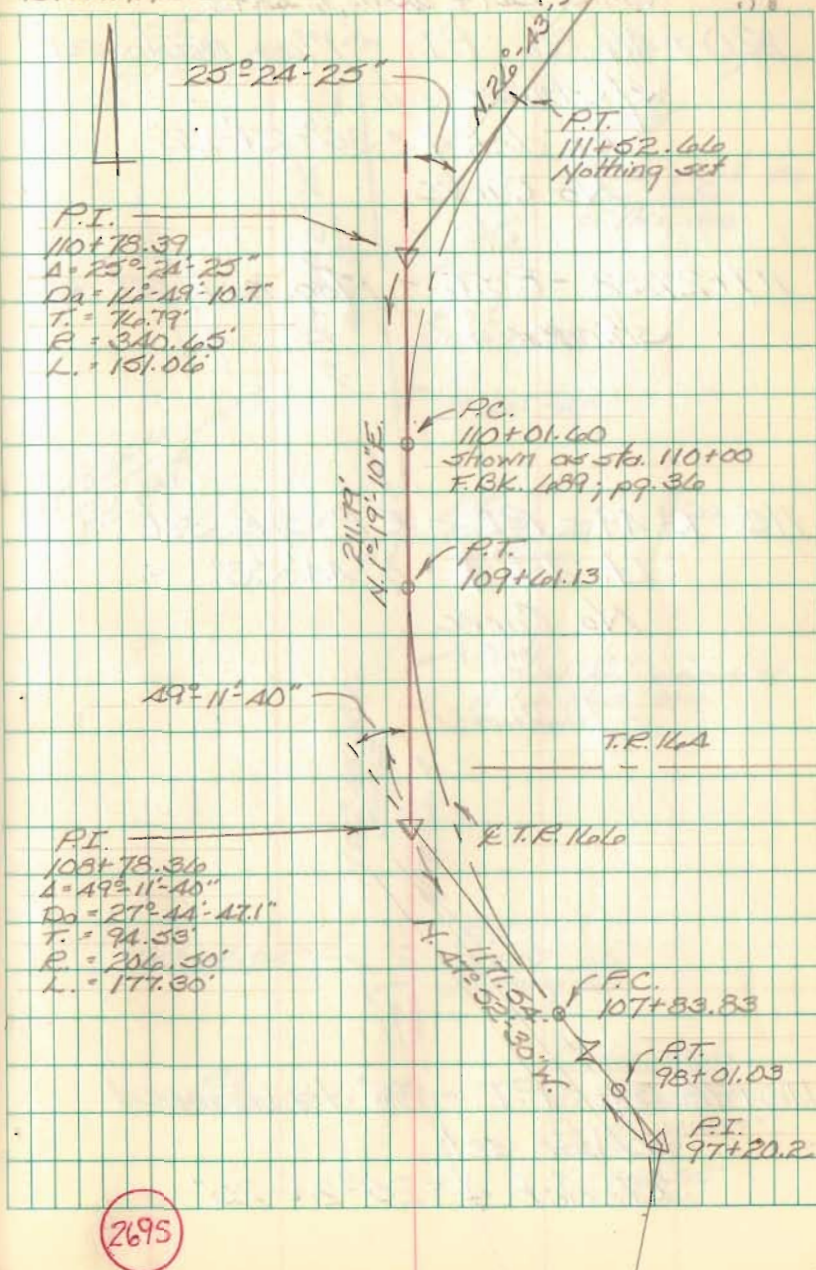 25°-24'-25"
N. 26°-43'
P.T.
111+52.66
Nothing set
P.I.
110+78.39
Δ = 25°-24'-25"
Da = 16°-49'-10.7"
T. = 76.79'
R. = 340.65'
L. = 151.06'
P.C.
110+01.60
shown as sta. 110+00
F.BK. 689; pg. 36
211.79'
N. 1°-19'-10" E.
P.T.
109+61.13
49°-11'-40"
T.R. 164
P.I.
108+78.36
Δ = 49°-11'-40"
Da = 27°-44'-47.1"
T. = 94.53'
R. = 206.50'
L. = 177.30'
℄ T.R. 166
1171.54'
N. 47°-52'-30" W.
P.C.
107+83.83
P.T.
98+01.03
P.I.
97+20.2
2695